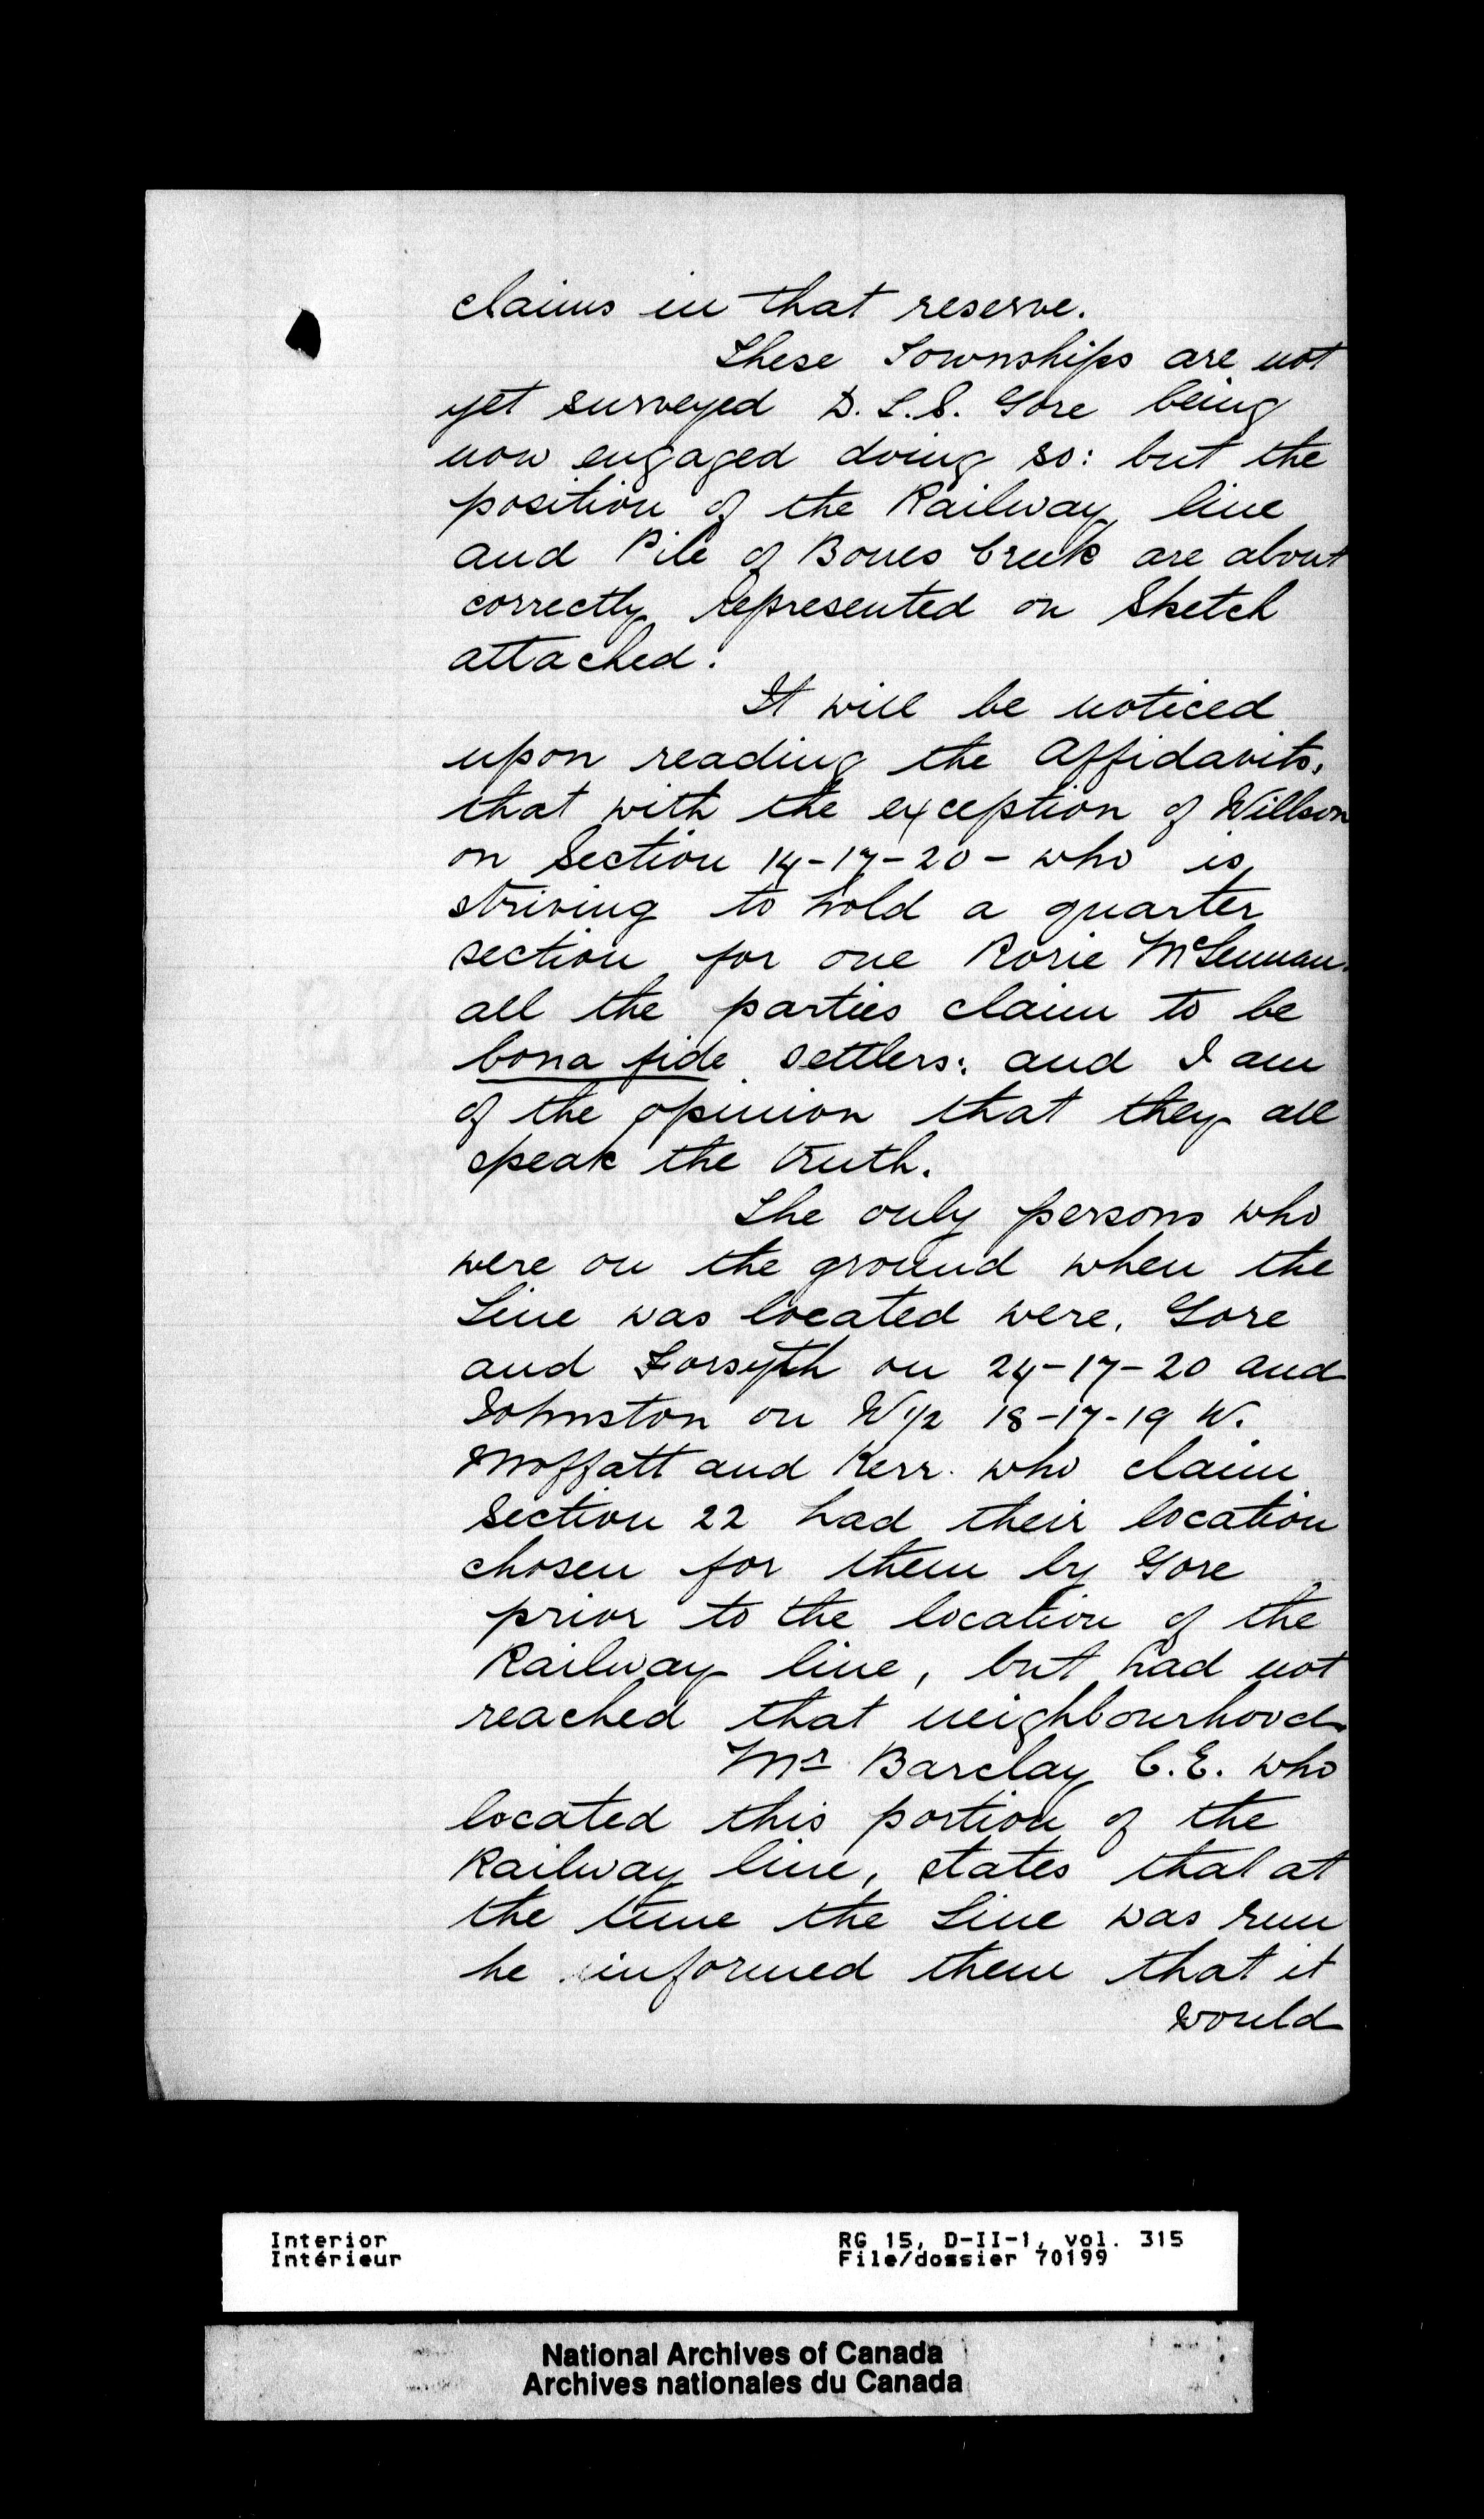 claims in that reserve.
These Townships are not
yet surveyed D. L. S. Gore being
now engaged doing so: but the
position of the Railway line
and Pile of Bones Creek are about
correctly represented on Sketch
attached.
It will be noticed
upon reading the Affidavits,
that with the exception of Willson
on Section 14-17-20 - who is
striving to hold a quarter
section for one Rorie McLennan.
all the parties claim to be
bona fide settlers: and I am
of the opinion that they all
speak the truth.
The only persons who
were on the ground when the
Line was located were, Gore
and Forsyth on 24-17-20 and
Johnston on W 1/2 18-17-19 W.
Moffatt and Kerr. who claim
Section 22 had their location
chosen for them by Gore
prior to the location of the
Railway line, but had not
reached that neighbourhood
Mr Barclay C.E. who
located this portion of the
Railway line, states that at
the time the Line was run
he informed them that it
would
Interior
Intérieur
RG 15, D-II-1, vol. 315
File/dossier 70199
National Archives of Canada
Archives nationales du Canada